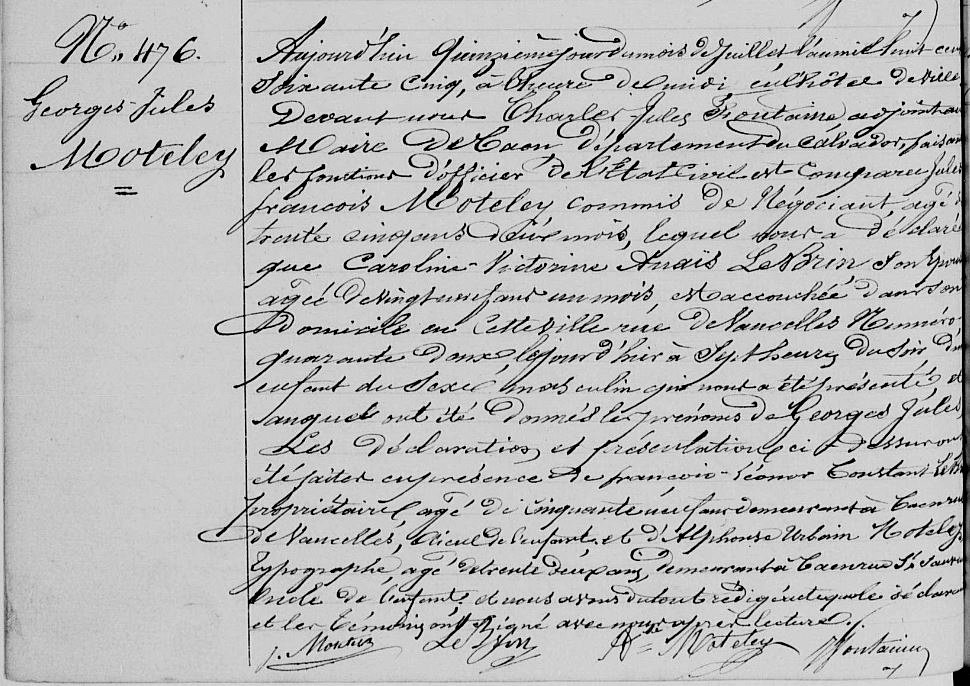 N° 476.
Georges-Jules
Moteley
Aujourd'hui Quinzième jour du mois de Juillet l'an mil huit cen
Soixante Cinq, à l'heure de midi en l'hôtel de Ville
Devant nous Charles Jules Fontaine adjoint au
Maire de Caen département du Calvados, faisan
les fonctions d'officier de l'État Civil est Comparu Jules
françois Moteley commis de Négociant, agé d
trente cinq ans deux mois, lequel nous a déclaré
que Caroline-Victorine Anais LeBrin, Son Epou
agée de vingt neuf ans un mois, est accouchée dans son
domicile en cette ville rue de Vaucelles Numéro
quarante deux, le jour d'hier à Sept heures du Soir, d'un
enfant du Sexe masculin qui nous a été présenté, et
auquel ont été donnés les prénoms de Georges Jules
Les déclaration et présentation ci-dessus on
été faites en présence de françois-Léonor Constant LeB
propriétaire agé de cinquante neuf ans demeurant à Caen rue
de Vaucelles, aïeul de l'enfant, et d'Alphonse Urbain Moteley
typographe agé de trente deux ans, demeurant à Caen rue St Sauveu
Oncle de l'enfant, et nous avons du tout rédigé acte que le déclaran
et les témoins ont Signé avec nous après lecture.
J. Moteley LeBrin A. Moteley Jfontaine